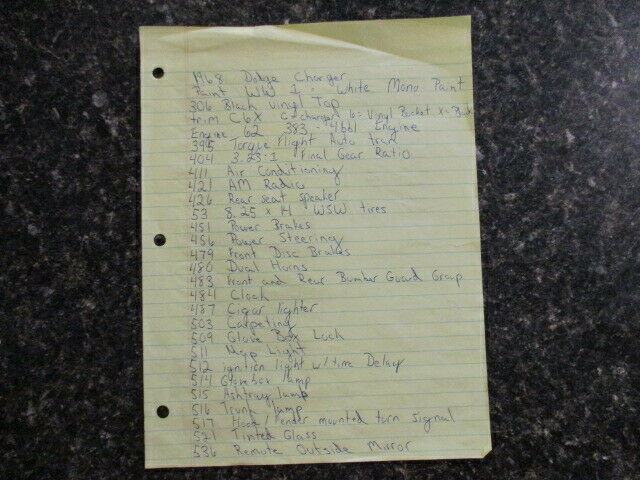 1968 Dodge Charger
Paint WW 1 : White Mono Paint
306 Black Vinyl Top
trim C6X C=charger 6=Vinyl Bucket X=Black
Engine 62 383 - 4bbl Engine
395 Torque Flight Auto tran
404 3.23:1 Final Gear Ratio
411 Air Conditioning
421 AM Radio
426 Rear seat speaker
53 8.25 x 14 WSW tires
451 Power Brakes
456 Power Steering
479 Front Disc Brakes
480 Dual Horns
483 Front and Rear Bumber Guard Group
484 Clock
487 Cigar lighter
503 Carpeting
509 Glove Box Lock
511 Map Light
512 ignition light w/time Delay
514 Glovebox lamp
515 Ashtray lamp
516 Trunk lamp
517 Hood/Fender mounted turn signal
521 Tinted Glass
536 Remote Outside Mirror